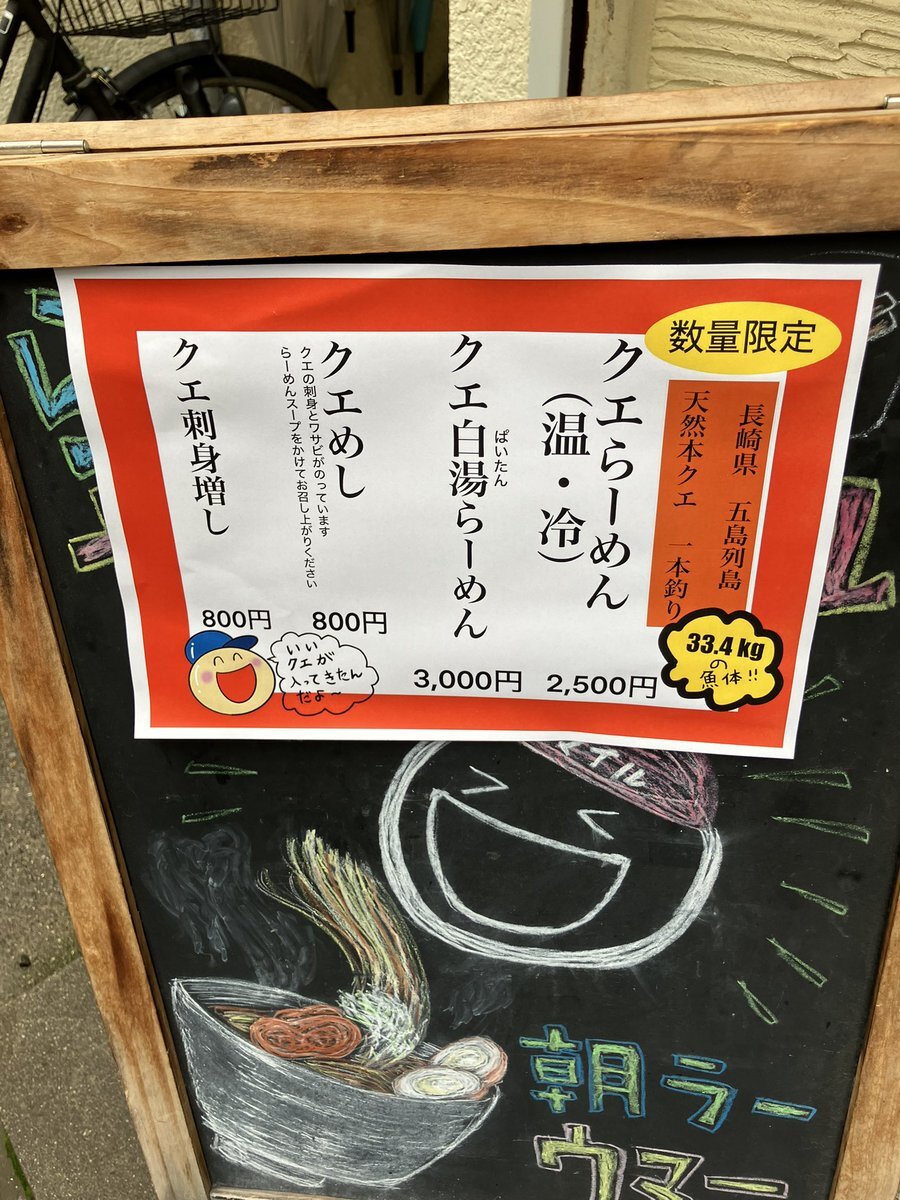 数量限定
長崎県 五島列島
天然本クエ 一本釣り
33.4kg
の
魚体!!
クエらーめん
(温・冷)
2,500円
ぱいたん
クエ白湯らーめん
3,000円
クエめし
クエの刺身とワサビがのっています
らーめんスープをかけてお召し上がりください
800円
クエ刺身増し
800円
いい
クエが
入ってきたん
だよ~
朝ラー
ウマー